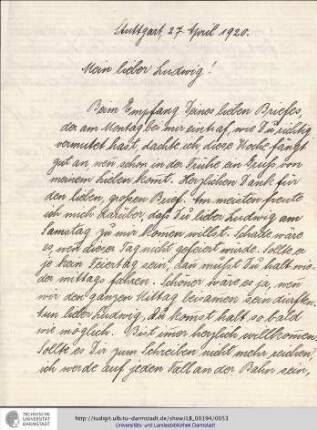 Stuttgart, 27. April 1920.
Mein lieber Ludwig!
Beim Empfang Deines lieben Briefes,
der am Montag bei mir eintraf, wie Du richtig
vermutet hast, dachte ich, diese Woche fängt
gut an, wenn schon in der Frühe ein Gruß von
meinem lieben kommt. Herzlichen Dank für
den lieben, großen Brief. Am meisten freute
ich mich darüber, daß Du lieber Ludwig am
Samstag zu mir komen willst. Schade wäre
es, wen dieser Tag nicht gefeiert würde. Sollte er
je kein Feiertag sein, dan mußt Du halt wie-
der mittags fahren. Schöner wäre es ja, wen
wir den ganzen Mittag beisamen sein dürften.
Nun lieber Ludwig, Du komst halt so bald
wie möglich. Bist imer herzlich willkommen.
Sollte es Dir zum Schreiben nicht mehr reichen,
ich werde auf jeden Fall an der Bahn sein,
TECHNISCHE
UNIVERSITÄT
DARMSTADT
http://tudigit.ulb.tu-darmstadt.de/show/LB_00194/0053
Universitäts- und Landesbibliothek Darmstadt